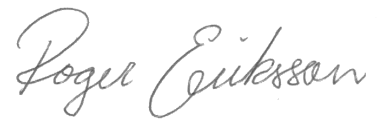 Roger Eriksson